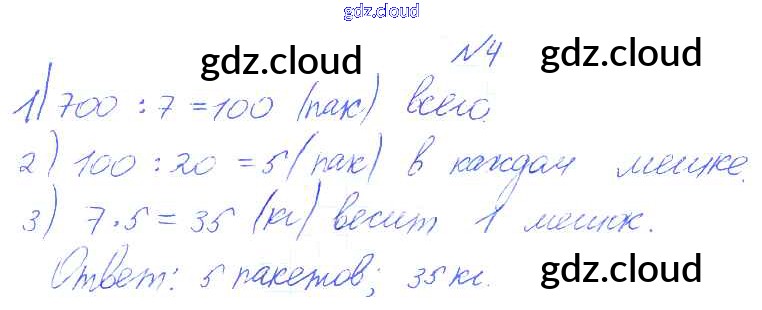 gdz.cloud
gdz.cloud
№4
gdz.cloud
1) 700 : 7 = 100 (пак) всего.
2) 100 : 20 = 5 (пак) в каждом мешке.
3) 7 · 5 = 35 (кг) весит 1 мешок.
Ответ: 5 пакетов; 35 кг.
gdz.cloud